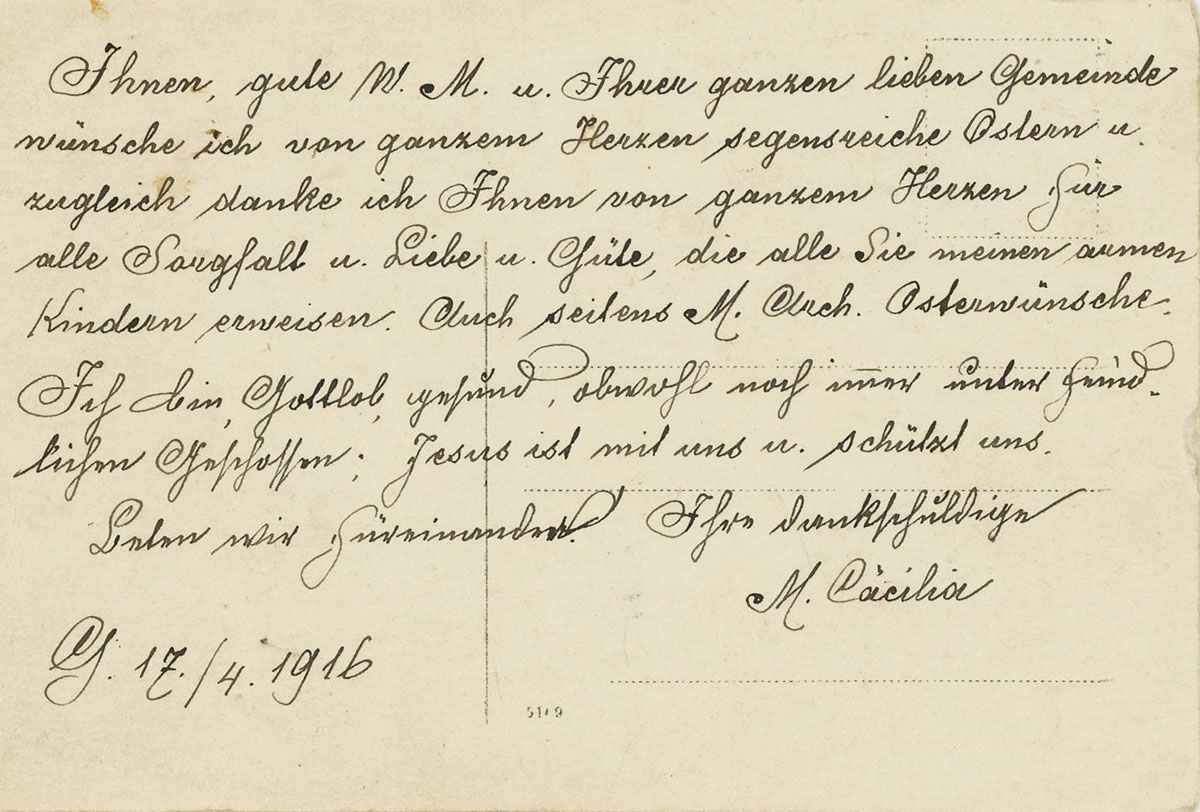 Ihnen, gute W. M. u. Ihrer ganzen lieben Gemeinde
wünsche ich von ganzem Herzen segensreiche Ostern u.
zugleich danke ich Ihnen von ganzem Herzen für
alle Sorgfalt u. Liebe u. Güte, die alle Sie meinen armen
Kindern erweisen. Auch seitens M. Arch. Osterwünsche.
Ich bin, Gottlob, gesund, obwohl noch im̅er unter feind-
lichen Geschossen; Jesus ist mit uns u. schützt uns.
Beten wir füreinander. Ihre dankschuldige
M. Cäcilia
G. 17./4. 1916